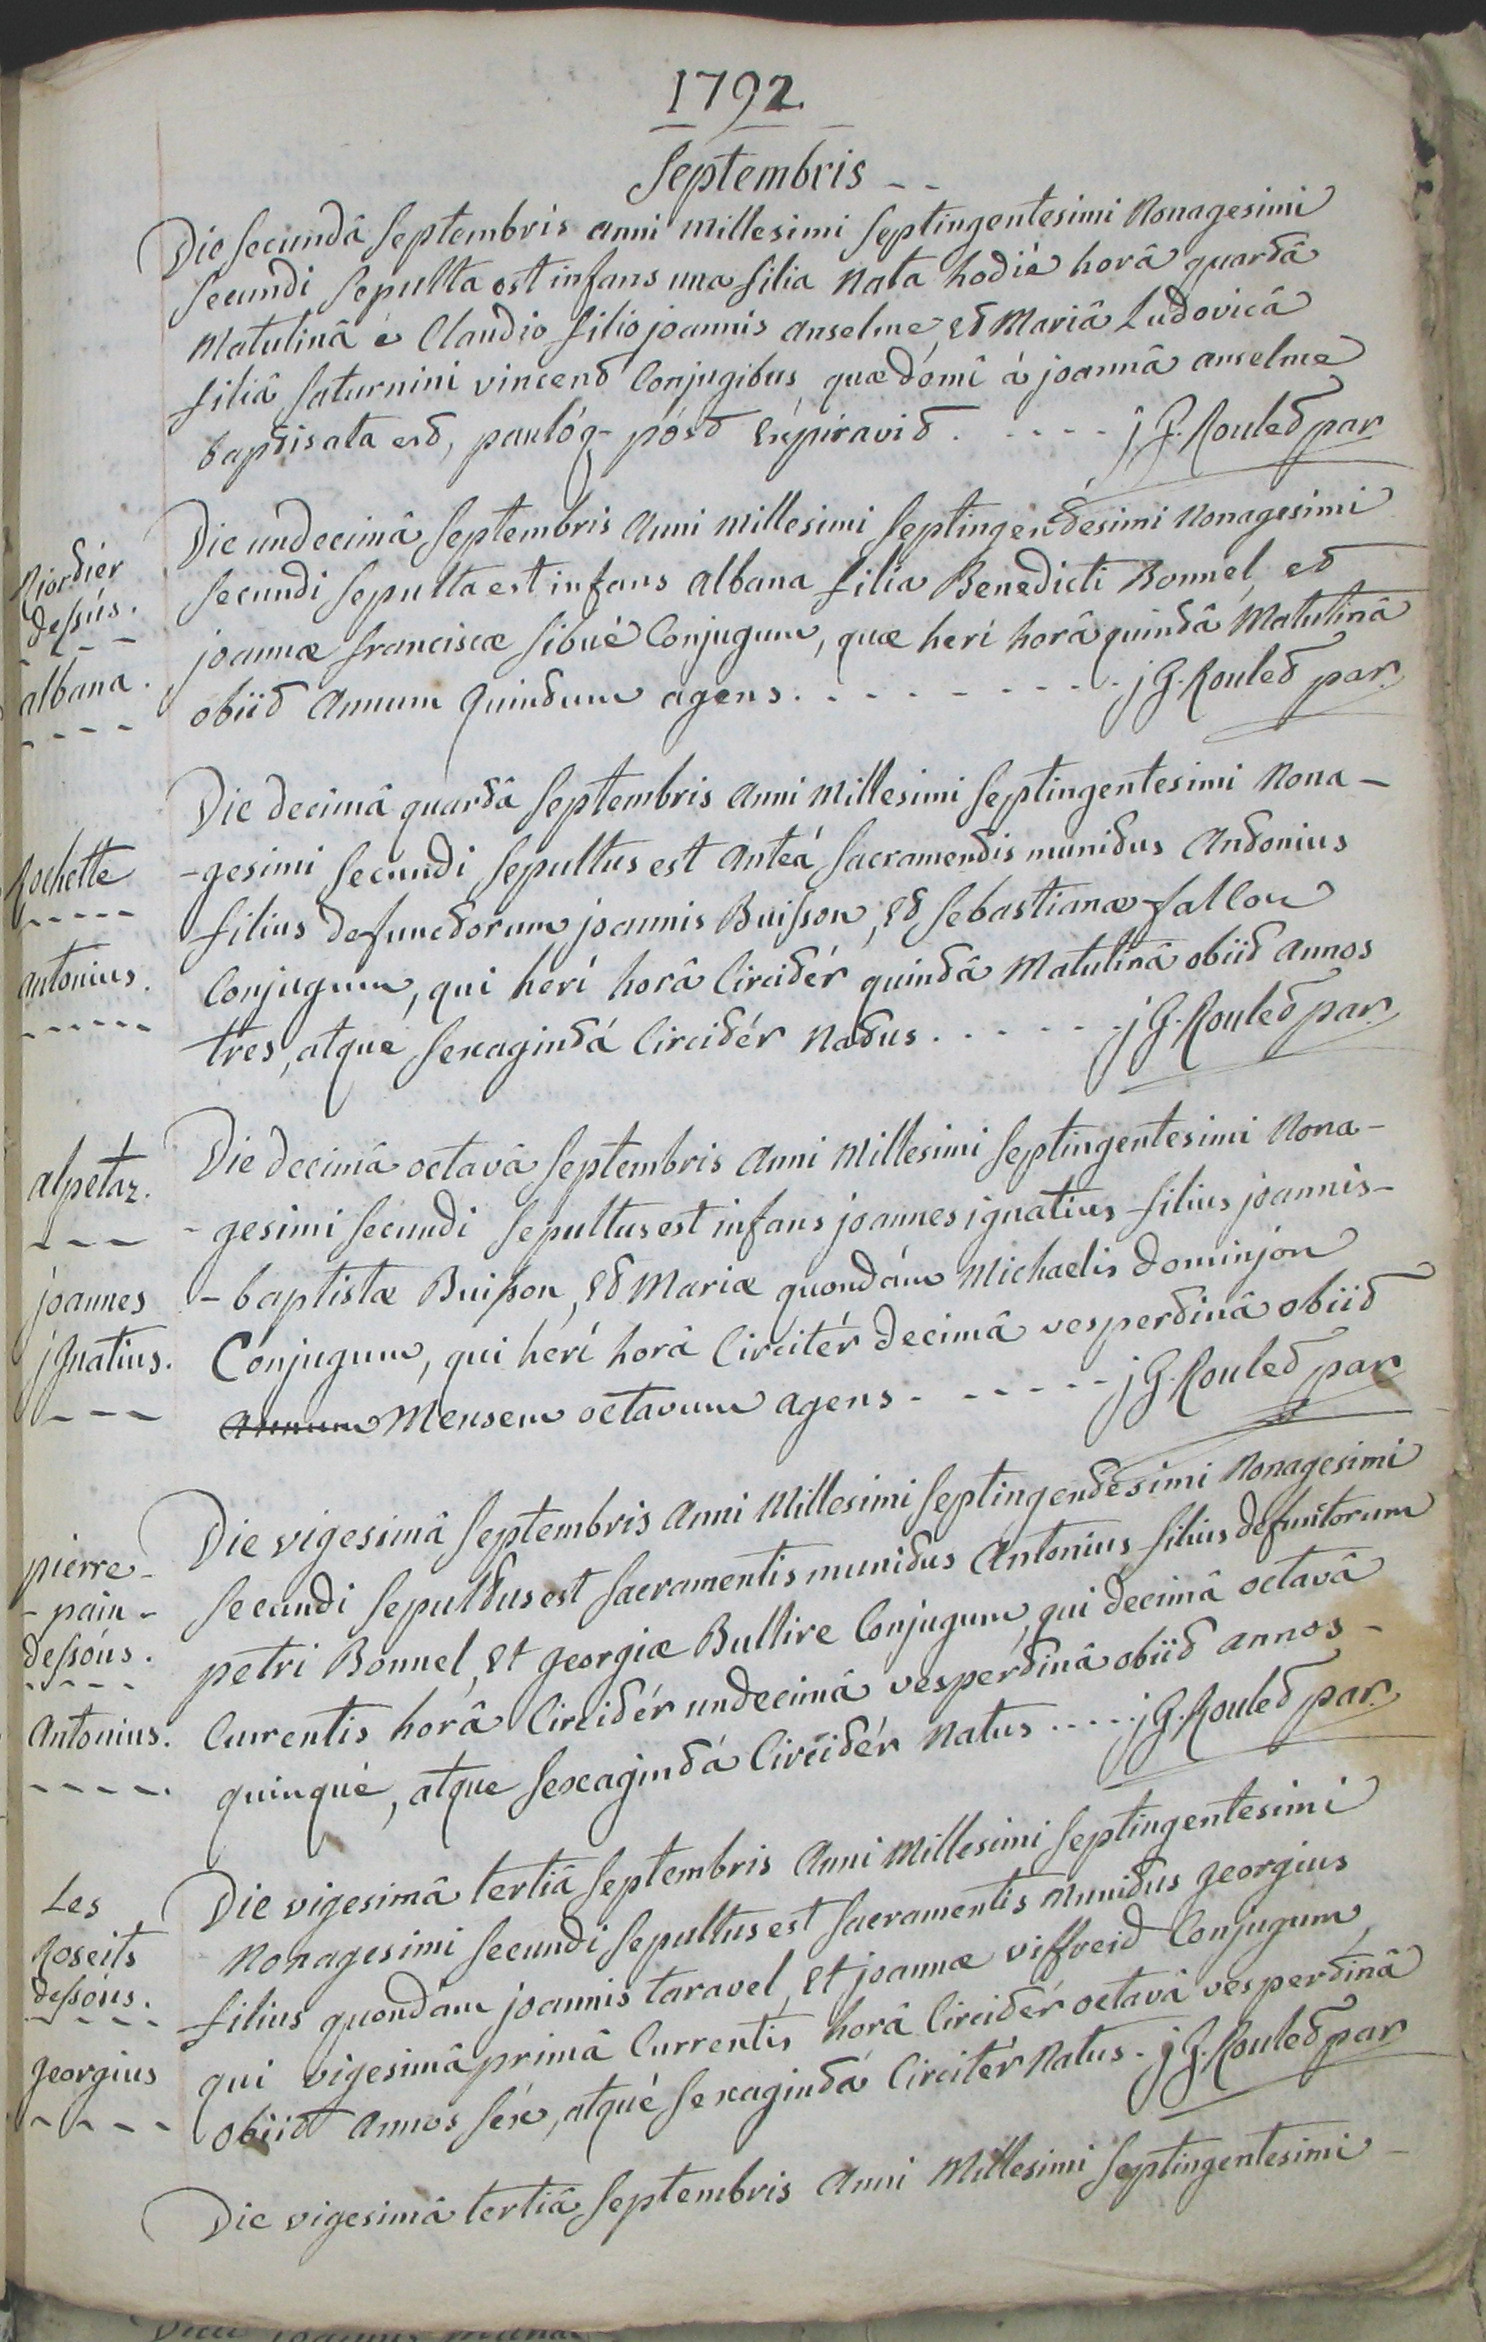 1792.
Septembris - -
Die secundâ Septembris anni millesimi septingentesimi nonagesimi
secundi sepulta est infans una filia nata hodié horâ quartâ
matutinâ é Claudio filio joannis anselme, et Mariâ Ludovicâ
filiâ Saturnini vincent Conjugibus, quæ domî á joannâ anselme
baptisata est, paulóq- póst expiravit . - - - - j G. Roulet par
Rjordiér
dessús.
albana.
Die undecimâ Septembris Anni millesimi septingentesimi nonagesimi
secundi sepulta est infans albana filia Benedicti Bonnel, et
joannæ franciscæ sibué Conjugum, quæ herí horâ quintâ Matutinâ
obiit Annum quintum agens. - - - - - - - - j G. Roulet par.
Rochette
antonius.
Die decimâ quartâ Septembris Anni Millesimi septingentesimi Nona-
-gesimi secundi sepultus est anteá Sacramentis munitus Antonius
filius defunctorum joannis Buisson, et sebastianæ fallon
Conjugum, qui herí horâ Circitér quintâ Matutinâ obiit annos
tres, atque sexagintá Circitér natus. - - - - - j G. Roulet par.
alpetaz.
joannes
jgnatius.
Die decimâ octavâ Septembris Anni Millesimi septingentesimi Nona-
-gesimi secundi sepultus est infans joannes ignatius filius joannis-
-baptistæ Buisson, et Mariæ quondám Michaelis Dominjon
Conjugum, qui herí horâ Circitér decimâ vespertinâ obiit
annum Mensem octavum agens - - - - - - j G. Roulet par
pierre-
-pain-
dessóus.
Antonius.
Die vigesimâ Septembris Anni Millesimi septingentesimi Nonagesimi
secundi sepultus est sacramentis munitus Antonius filius defuntorum
petri Bonnel, et georgiæ Bullire Conjugum, qui decimâ octavâ
Currentis horâ Circitér undecimâ vespertinâ obiit annos -
quinqué, atque sexagintá Circitér natus - - - - j G. Roulet par.
Les
Roseits
dessóus.
georgius
Die vigesimâ tertiâ Septembris Anni Millesimi septingentesimi
Nonagesimi secundi sepultus est sacramentis munitus georgius
filius quondam joannis taravel, et joannæ viffreid Conjugum,
qui vigesimâ primâ Currentis horâ Circitér octavâ vespertinâ
obiit annos séx, atqué sexagintá Circitér natus - j G. Roulet par
Die vigesimâ tertiâ Septembris Anni Millesimi septingentesimi -